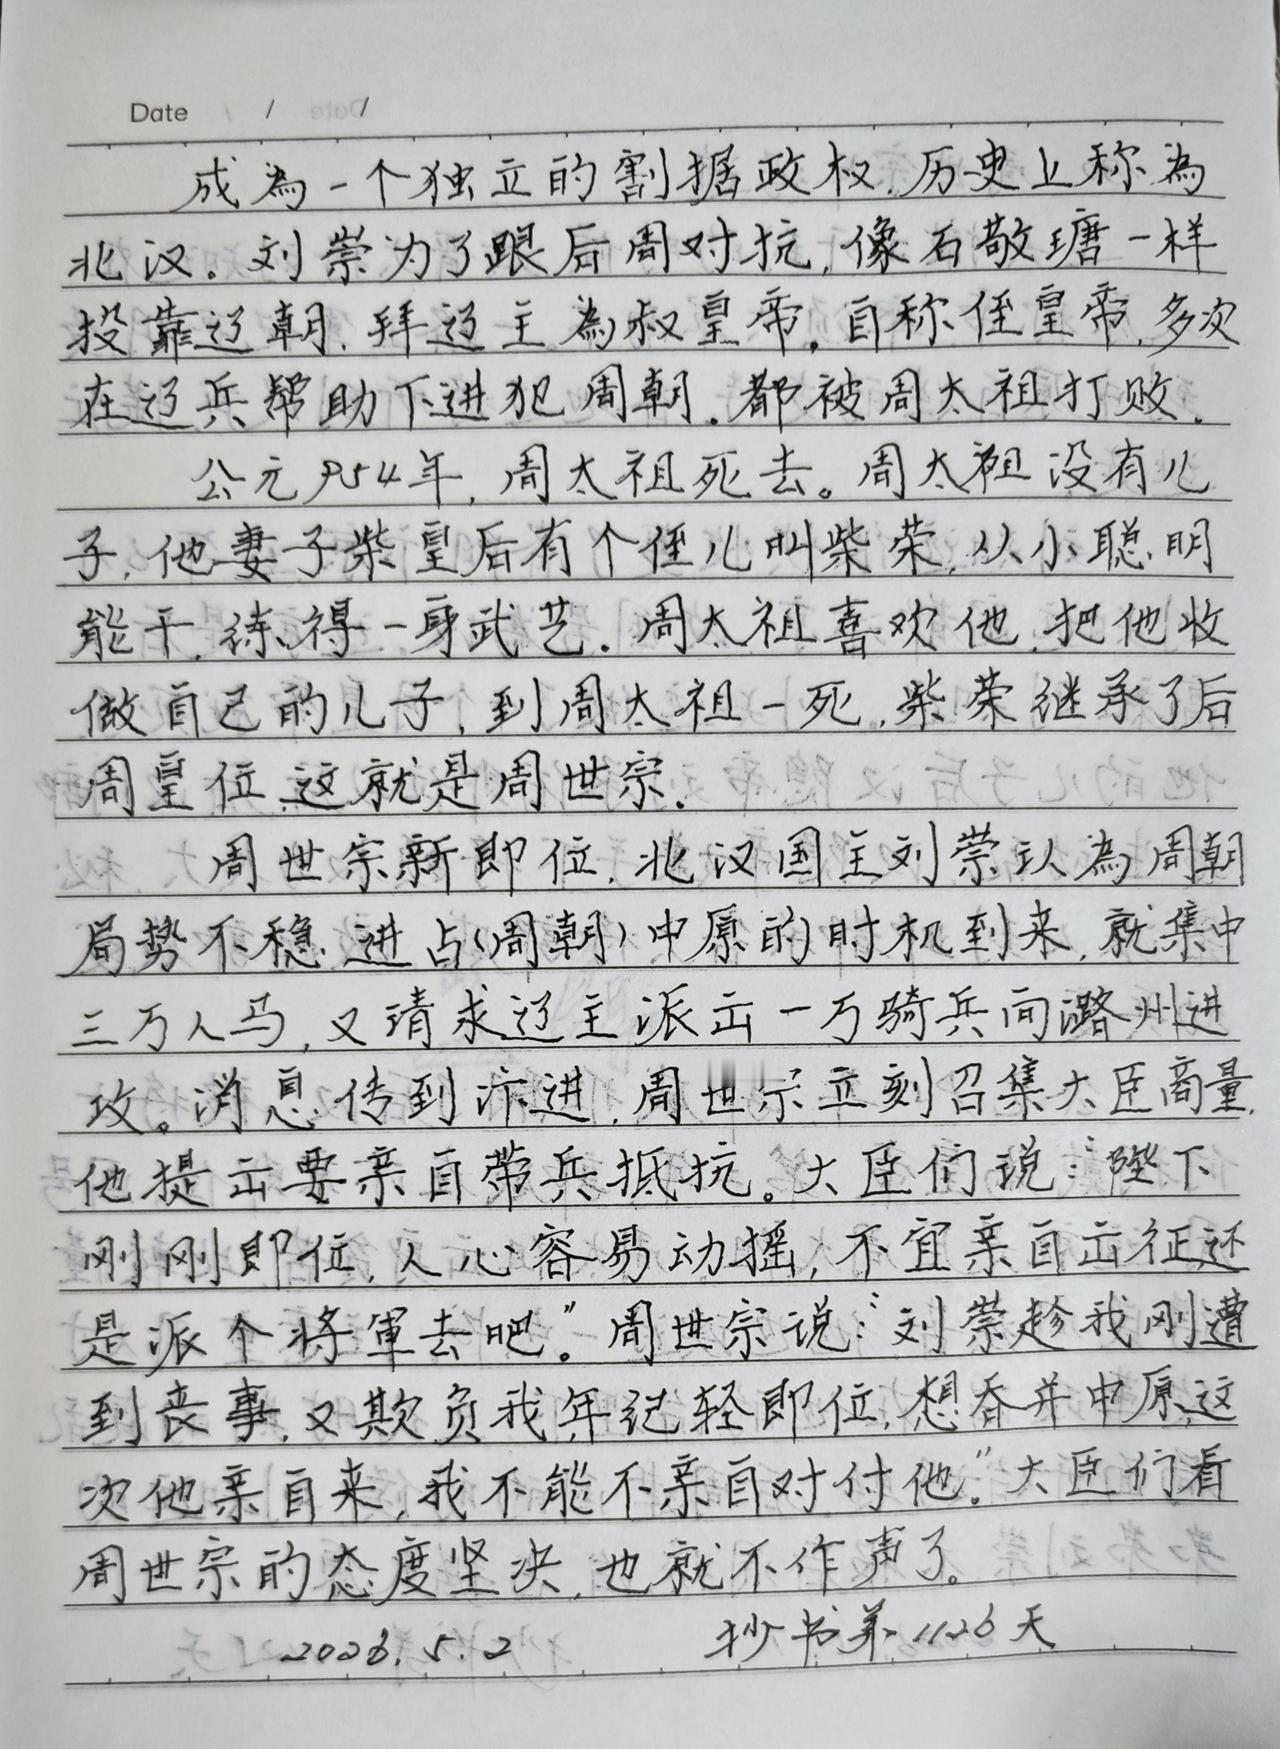 Date / /
成為一个独立的割据政权，历史上称為
北汉。刘崇为了跟后周对抗，像石敬瑭一样
投靠辽朝，拜辽主為叔皇帝。自称侄皇帝，多次
在辽兵帮助下进犯周朝。都被周太祖打败。
公元954年，周太祖死去。周太祖没有儿
子，他妻子柴皇后有个侄儿叫柴荣，从小聪明
能干，练得一身武艺。周太祖喜欢他，把他收
做自己的儿子，到周太祖一死，柴荣继承了后
周皇位，这就是周世宗。
周世宗新即位，北汉国主刘崇认為周朝
局势不稳，进占（周朝）中原的时机到来，就集中
三万人马，又请求辽主派出一万骑兵向潞州进
攻。消息传到汴进，周世宗立刻召集大臣商量，
他提出要亲自带兵抵抗。大臣们说：“陛下
刚刚即位，人心容易动摇，不宜亲自出征还
是派个将軍去吧”。周世宗说：“刘崇趁我刚遭
到丧事，又欺负我年纪轻即位，想吞并中原，这
次他亲自来，我不能不亲自对付他。”大臣们看
周世宗的态度坚决，也就不作声了。
2026.5.2 抄书第1126天